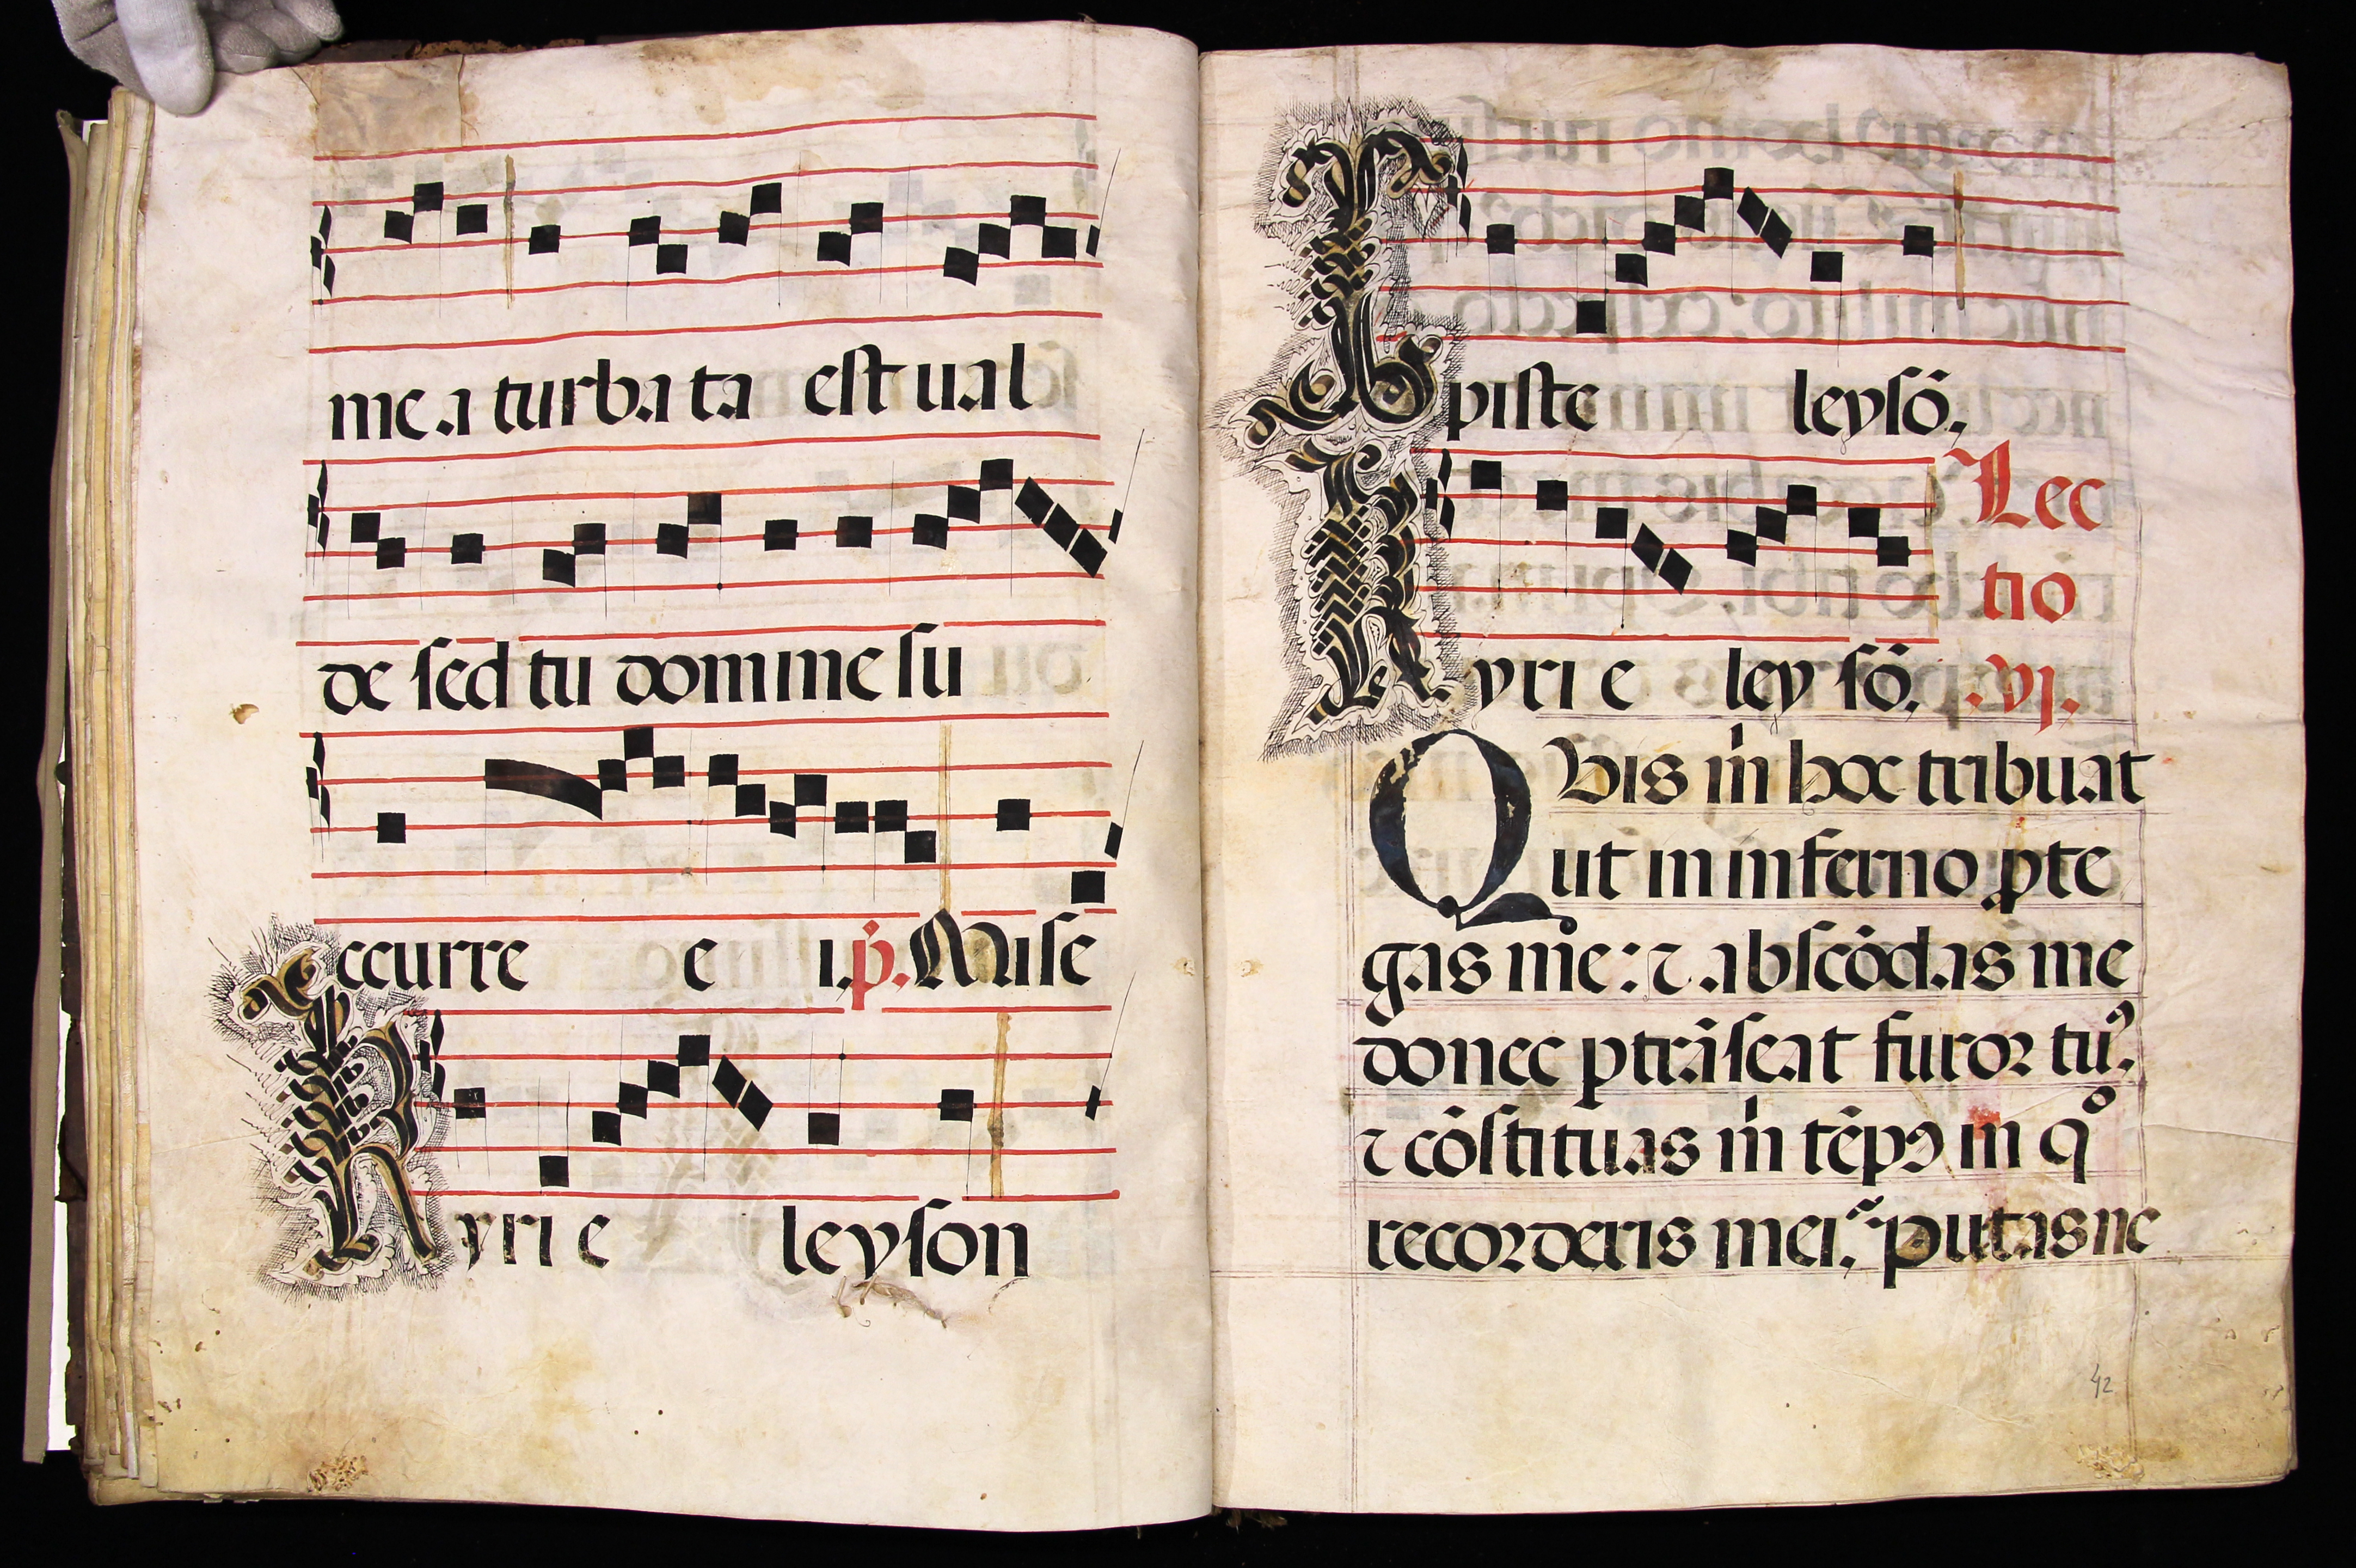 me a turba ta est ual
de sed tu domine su
ccurre e i. p̃. Mise
Kyri e leyson
Xpiste leysõ.
Lec
Kyri e ley sõ.
tio
.vj.
Quis m̃ hoc tribuat
ut in inferno ꝓte
gas me: ⁊ abscõdas me
donec ptrãseat furor tuꝰ.
⁊ cõstituas m̃ tẽpꝰ in qͦ
recorderis mei. putasne
42